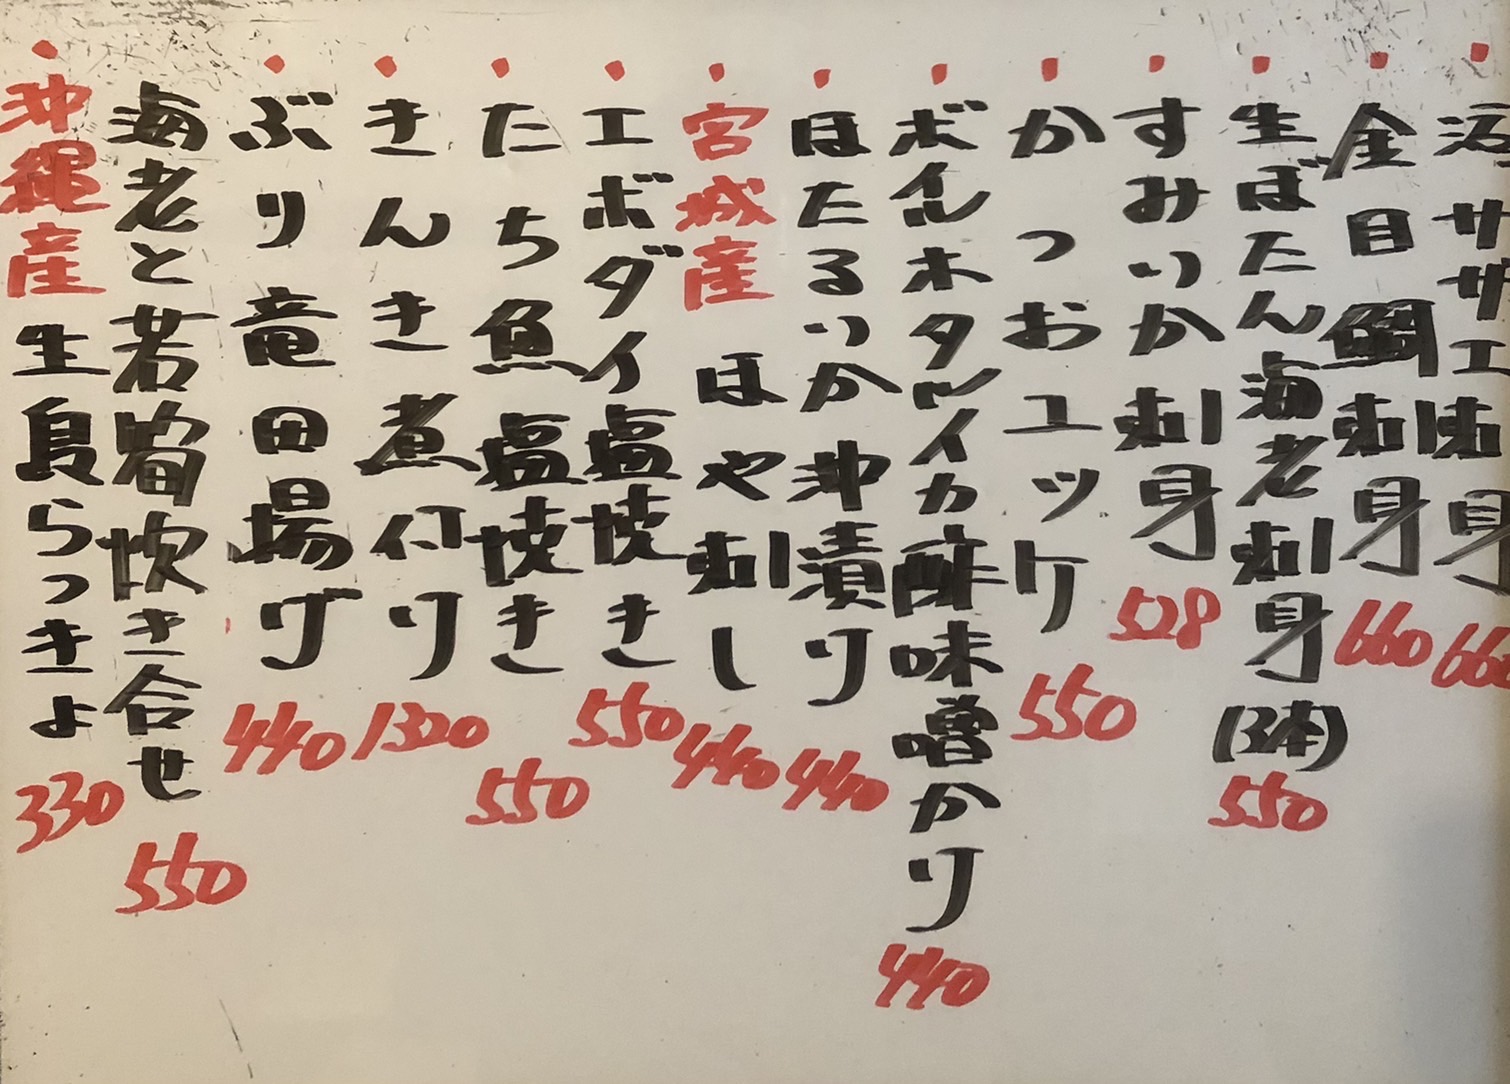 活サザエ刺身 660
金目鯛刺身 660
生ぼたん海老刺身(3本) 550
すみいか刺身 528
かつおユッケ 550
ボイルホタルイカ酢味噌かけ 440
ほたるいか沖漬け 440
宮城産 ほや刺し 440
エボダイ塩焼き 550
たち魚塩焼き 550
きんき煮付け 1320
ぶり竜田揚げ 440
海老と若筍炊き合せ 550
沖縄産 生島らっきょ 330